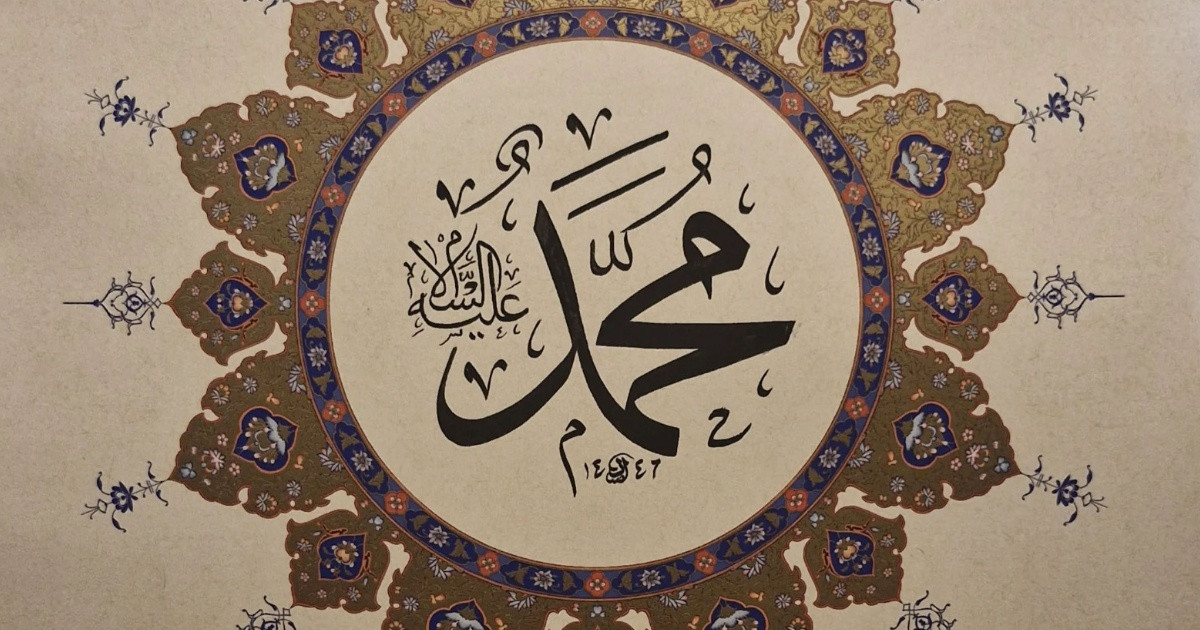 محمد
عليه السلام
١٤٤٦